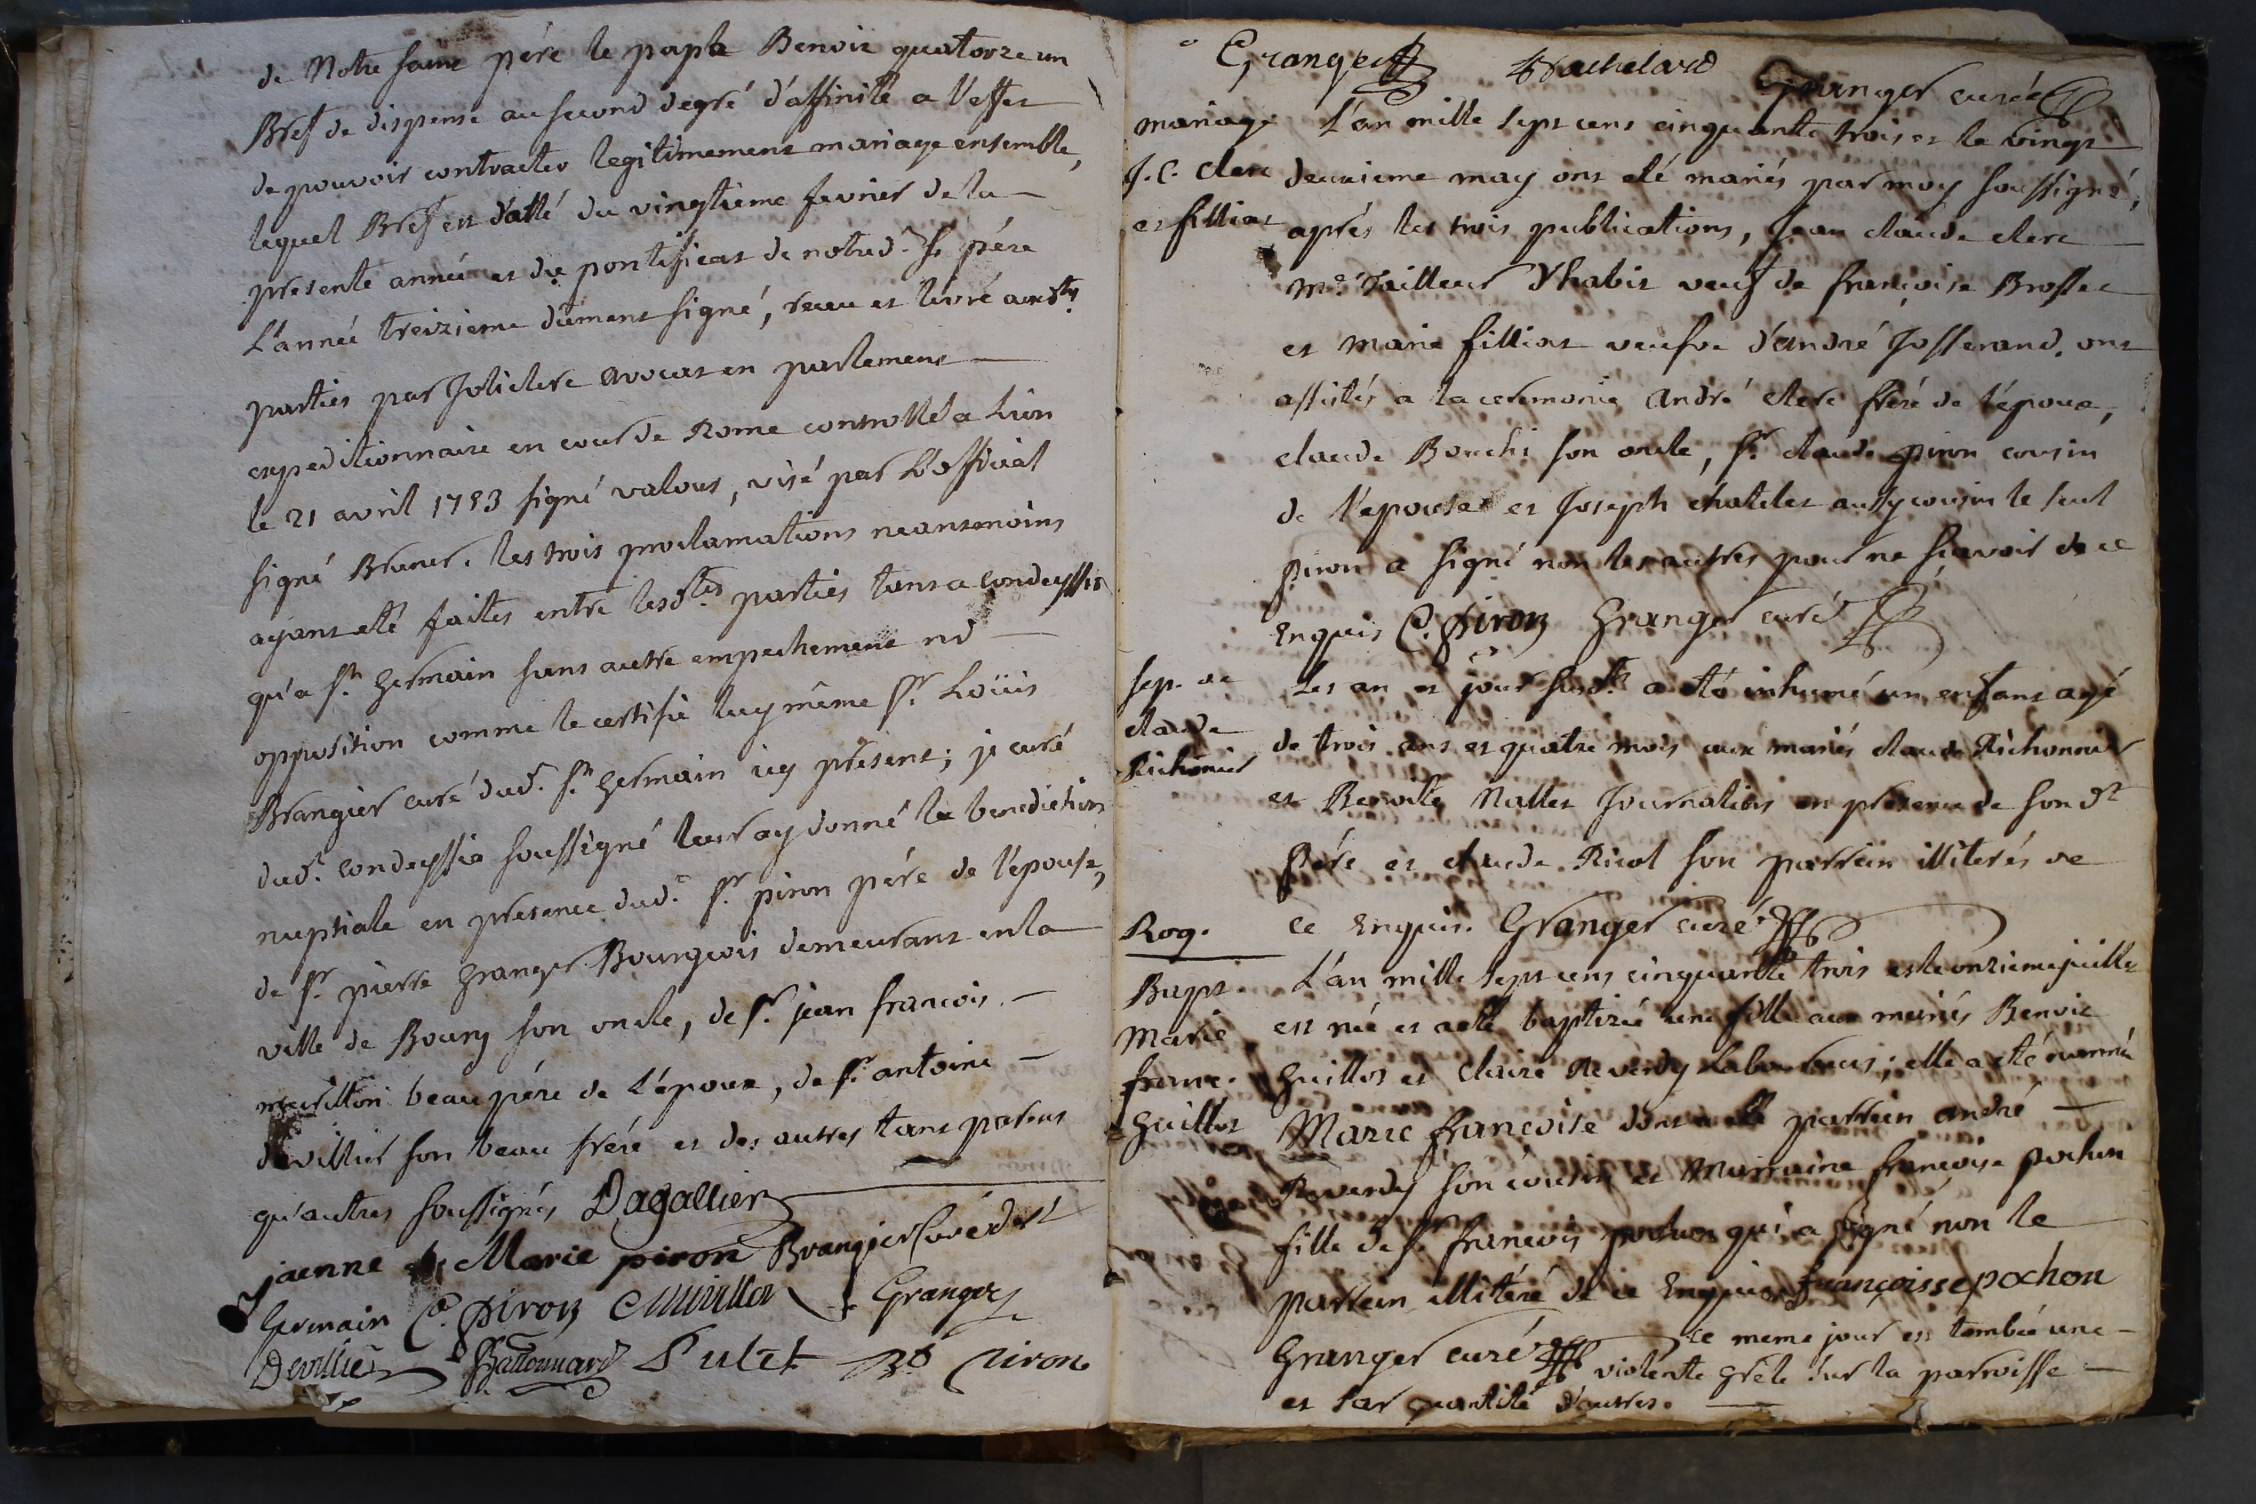 de Notre saint pére le pape Benoit quatorze un
Bref de dispense au second degré d'affinité a l'effet
de pouvoir contracter legitimement mariage ensemble,
lequel Bref est datté du vingtieme fevrier de la
presente année et du pontificat de notred. St pére
L'année treizieme dument signé, receu et livré auxd.tes
parties par Joliclerc avocat en parlement
expeditionnaire en cour de Rome controllé a Lion
le 21 avril 1753 signé valous, visé par L'official
signé Brunet. les trois proclamations neantmoins
ayant eté faites entre lesd.tes parties tant a Condeyssia
qu'a St. Germain sans autre empechement nd
opposition comme le certifie luy même Sr. Loüis
Brangier curé dud. St. Germain icy present; je curé
dud. Condeyssia soussigné leur ay donné la benediction
nuptiale en presence dud. Sr. piron pére de l'épouse,
de Sr. pierre Granger Bourgeois demeurant en la
ville de Bourg son oncle, de Sr. jean francois
beau pére de L'époux, de Sr. antoine
devillier son beau frére et des autres tant parens
qu'autres soussignés Dagallier
jaenne Marie piron Brangier Curé de St
Germain C. piron Granger
Devillie Putet piron
Granger Granger curé
mariage L'an mille sept cent cinquante trois et le vingt
J. C. Clerc deuxieme may ont eté mariés par moy soussigné,
et filliat aprés les trois publications, Jean claude clerc
Me. Tailleur d'habit veuf de françoise Brosset
et Marie filliat veufve d'andré Josserand. ont
assistés a la ceremonie André clerc frére de l'époux,
claude Bouchi son oncle, Sr. claude piron cousin
de l'épouse et Joseph chatelet aussy cousin le seul
piron a signé non les autres pour ne sçavoir de ce
Enquis C. piron Granger curé
Sep. de Les an et jour susd.ts a eté inhumé un enfant agé
claude de trois ans et quatre mois aux mariés claude Richonnier
Richonier et Benoite Nallet Journaliers en presence de sond.t
Pére et claude Ricol son parrein illiterés de
Rog. ce Enquis. Granger curé
Bapt. L'an mille sept cent cinquante trois et le onzieme juillet
Marie est née et a eté baptizée une fille aux mariés Benoit
franc. Guillot et Claire Reverdy Laboureurs; elle a eté nommée
Guillot Marie francoise dont a eté parrein andré
Reverdy son cousin et Marraine françoise pochon
fille de Sr. francois pochon qui a signé non le
parrein illiteré de ce Enquis françoisse pochon
Granger curé ce meme jour est tombée une
violente grêle sur la parroisse
et sur quantité d'autres.